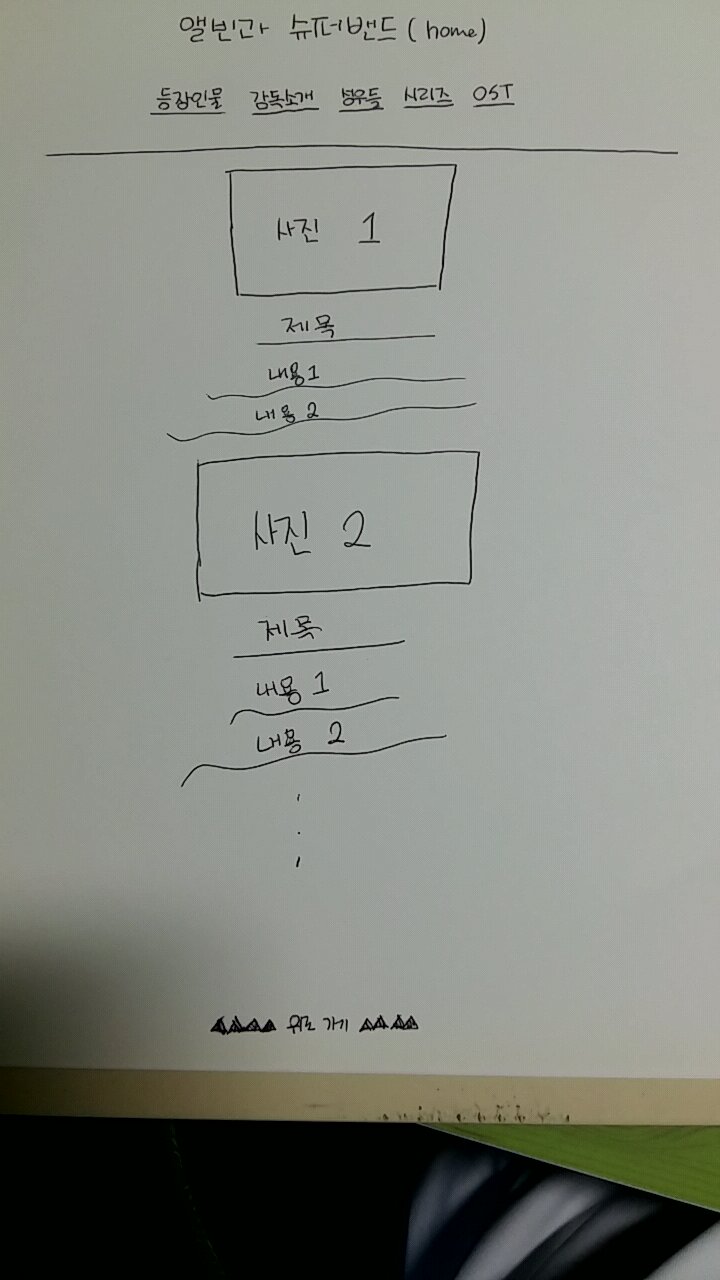 앨빈과 슈퍼밴드 (home)
등장인물 감독소개 성우들 시리즈 OST
사진 1
제목
내용1
내용 2
사진 2
제목
내용 1
내용 2
▲▲▲▲ 위로 가기 ▲▲▲▲